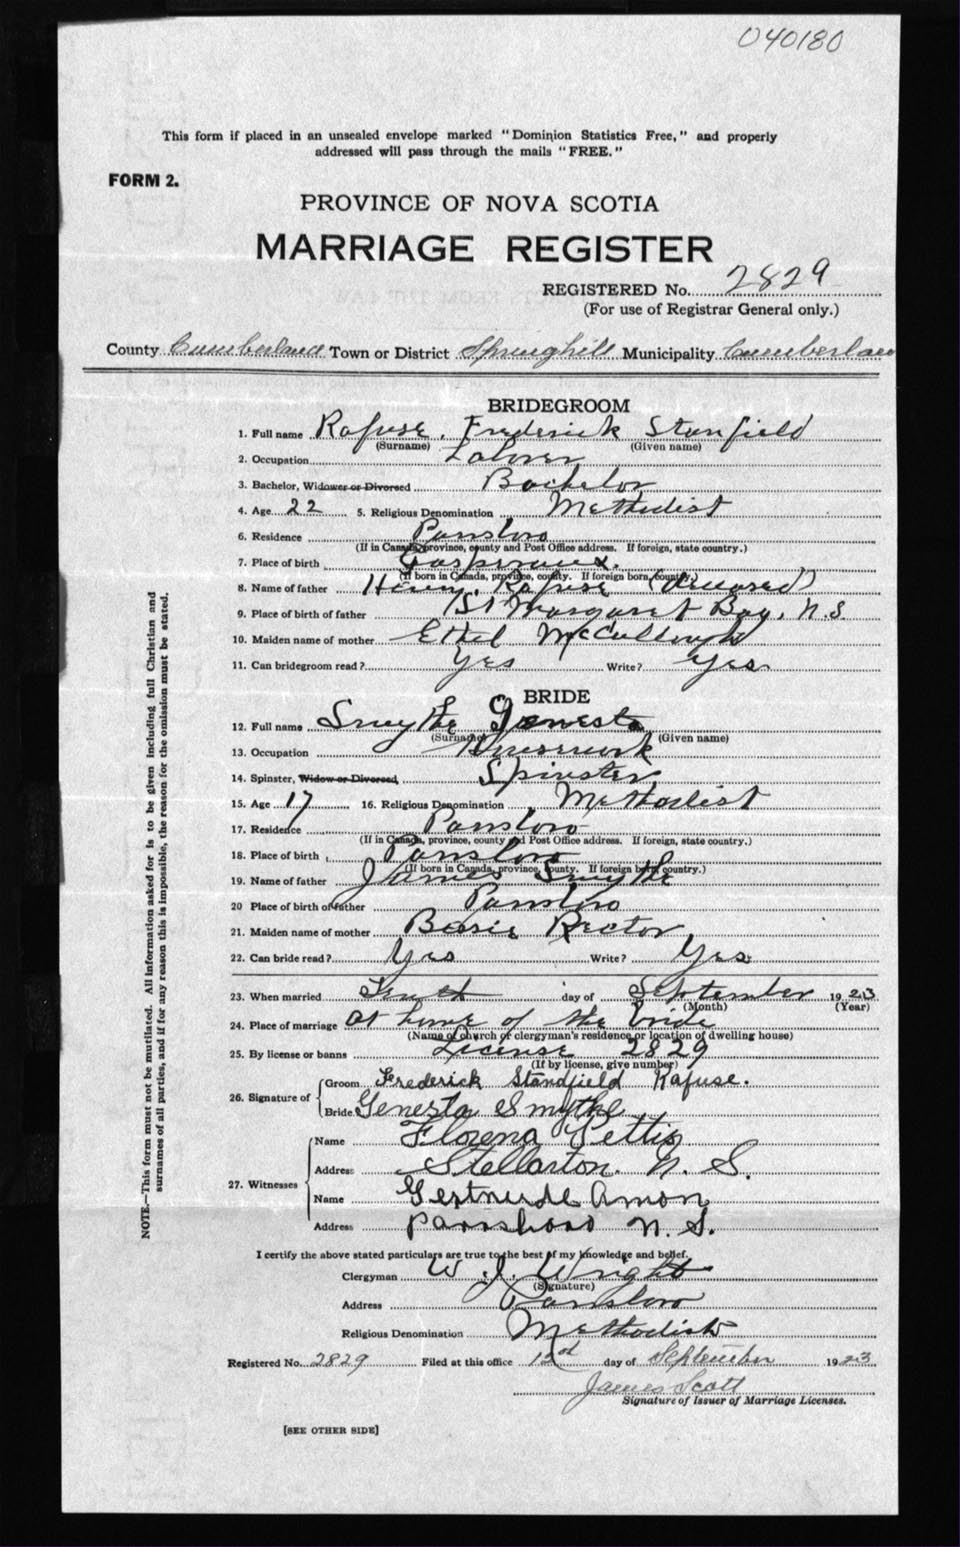 040180
This form if placed in an unsealed envelope marked "Dominion Statistics Free," and properly
addressed will pass through the mails "FREE."
FORM 2.
PROVINCE OF NOVA SCOTIA
MARRIAGE REGISTER
REGISTERED No. 2829
(For use of Registrar General only.)
County Cumberland Town or District Springhill Municipality Cumberland
BRIDEGROOM
1. Full name Rafuse, Frederick Stanfield
(Surname) (Given name)
2. Occupation Laborer
3. Bachelor, Widower or Divorced Bachelor
4. Age 22 5. Religious Denomination Methodist
6. Residence Parrsboro
(If in Canada, province, county and Post Office address. If foreign, state country.)
7. Place of birth Gaspereaux.
(If born in Canada, province, county. If foreign born, country.)
8. Name of father Henry Rafuse (deceased)
9. Place of birth of father St Margaret Bay, N.S.
10. Maiden name of mother Ethel McCullough
11. Can bridegroom read? Yes Write? Yes
BRIDE
12. Full name Smythe Genesta
(Surname) (Given name)
13. Occupation Housework
14. Spinster, Widow or Divorced, Spinster
15. Age 17 16. Religious Denomination Methodist
17. Residence Parrsboro
(If in Canada, province, county and Post Office address. If foreign, state country.)
18. Place of birth Parrsboro
(If born in Canada, province, county. If foreign born, country.)
19. Name of father James Smythe
20 Place of birth of father Parrsboro
21. Maiden name of mother Bessie Rector
22. Can bride read? Yes Write? Yes
23. When married Tenth day of September 1923
(Month) (Year)
24. Place of marriage At home of the bride
(Name of church or clergyman's residence or location of dwelling house)
25. By license or banns License 2829
(If by license, give number)
26. Signature of Groom Frederick Standfield Rafuse.
Bride Genesta Smythe
27. Witnesses Name Florena Pettis
Address Stellarton. N. S.
Name Gertrude Amon
Address Parrsboro N. S.
I certify the above stated particulars are true to the best of my knowledge and belief.
Clergyman W. J. Wright
(Signature)
Address Parrsboro
Religious Denomination Methodist
Registered No. 2829 Filed at this office 12th day of September 1923
James Scott
Signature of Issuer of Marriage Licenses.
[SEE OTHER SIDE]
NOTE.—This form must not be mutilated. All information asked for is to be given including full Christian and
surnames of all parties, and if for any reason this is impossible, the reason for the omission must be stated.